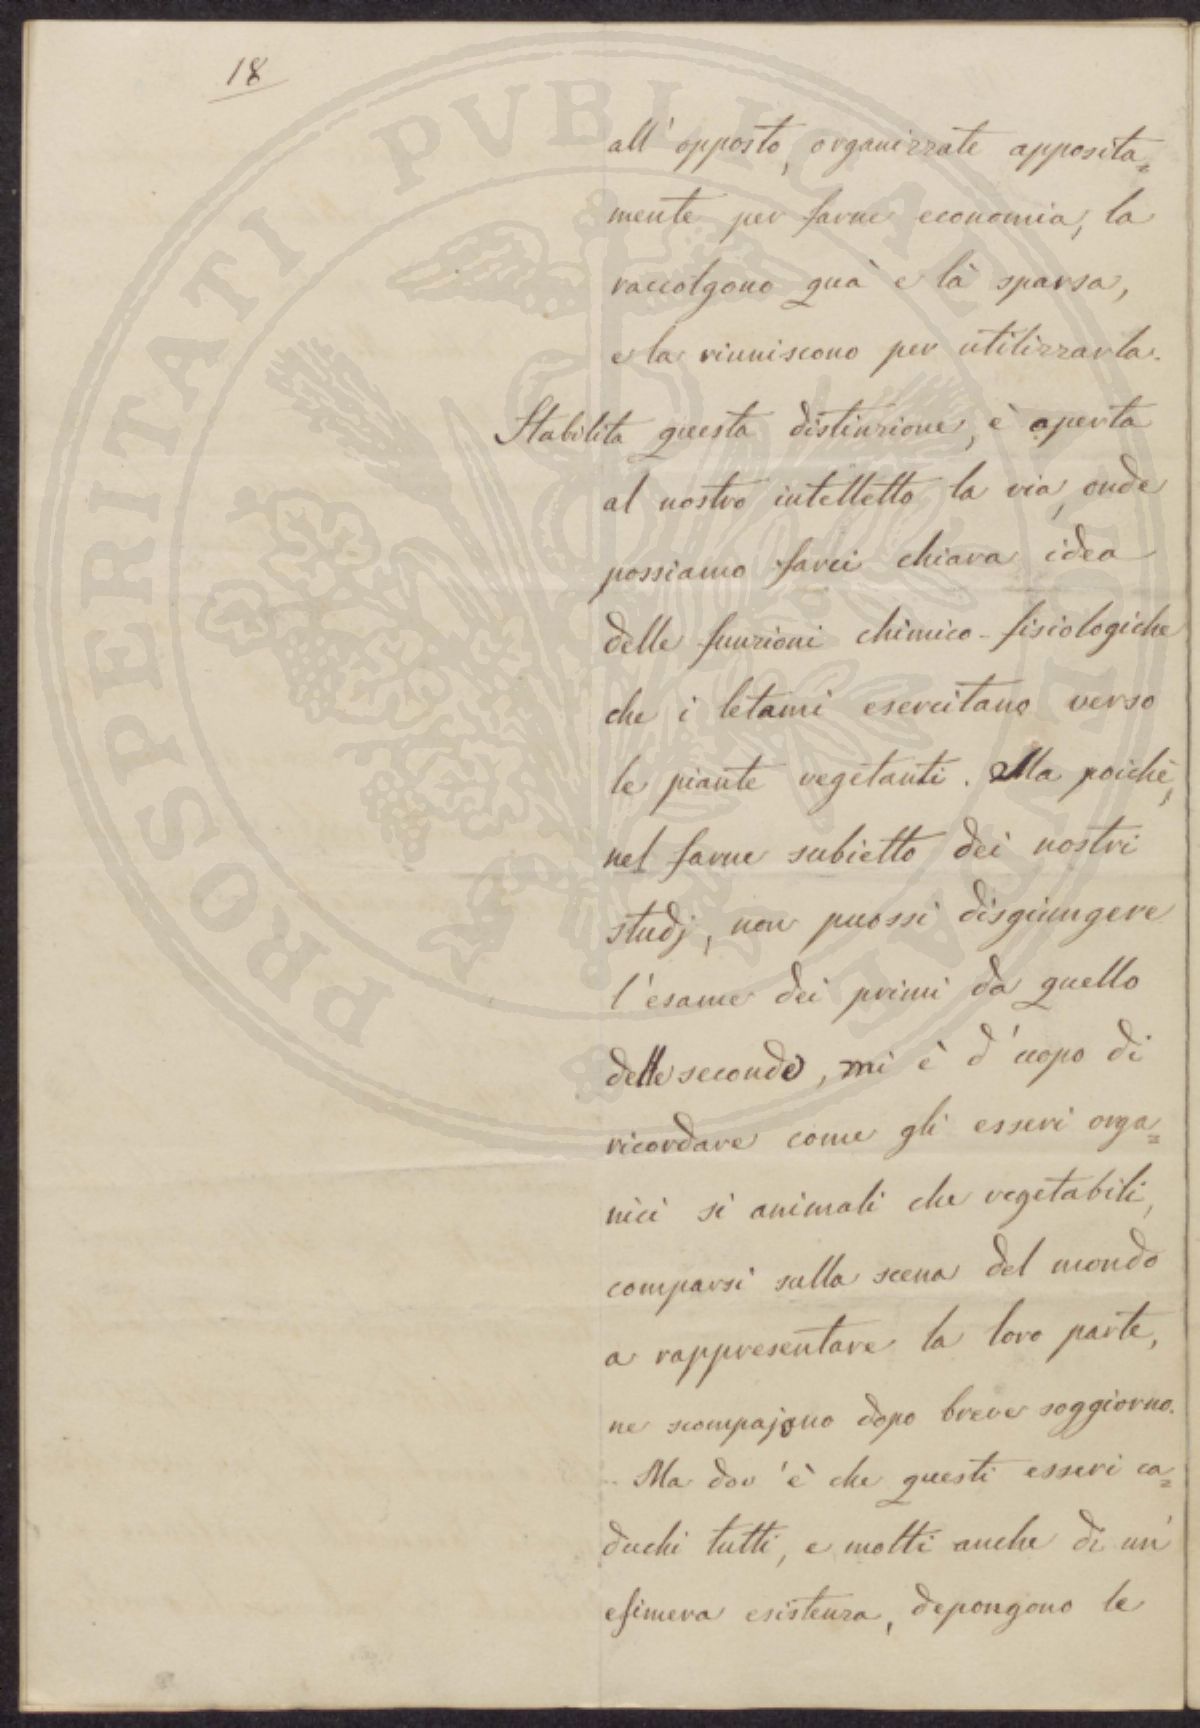 18
all'opposto, organizzate apposita=
mente per farne economia, la
raccolgono quà e là sparsa,
e la riuniscono per utilizzarla.
Stabilita questa distinzione, è aperta
al nostro intelletto la via, onde
possiamo farci chiara idea
delle funzioni chimico-fisiologiche
che i letami esercitano verso
le piante vegetanti. Ma poichè,
nel farne subietto dei nostri
studj, non puossi disgiungere
l'esame dei primi da quello
delle seconde, mi è d'uopo di
ricordare come gli esseri orga=
nici si animali che vegetabili,
comparsi sulla scena del mondo
a rappresentare la loro parte,
ne scompajono dopo breve soggiorno.
Ma dov'è che questi esseri ca=
duchi tutti, e molti anche di un'
efimera esistenza, depongono le
PROSPERITATI PVBLICAE AVGENDAE